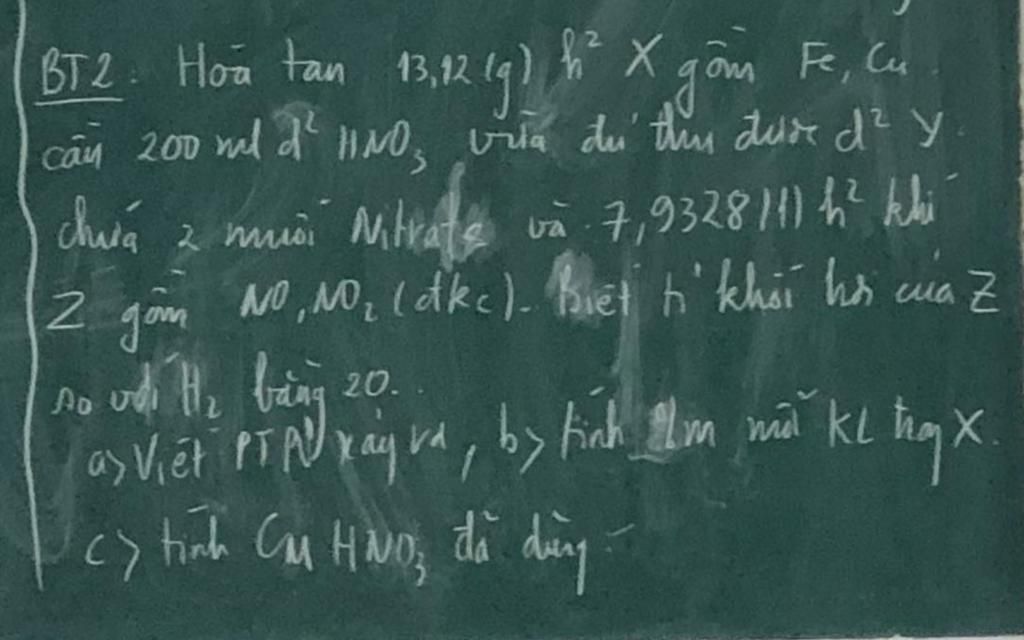 BT2: Hòa tan 13,12(g) h² X gồm Fe, Cu
cần 200 ml d² HNO₃ vừa đủ thu được d² Y
chứa 2 muối Nitrate và 7,9328 lít h² khí
Z gồm NO, NO₂ (đkc). Biết tỉ khối hơi của Z
so với H₂ bằng 20.
a> Viết PTPỨ xảy ra, b> tính %m mỗi KL trong X.
c> tính CM HNO₃ đã dùng.